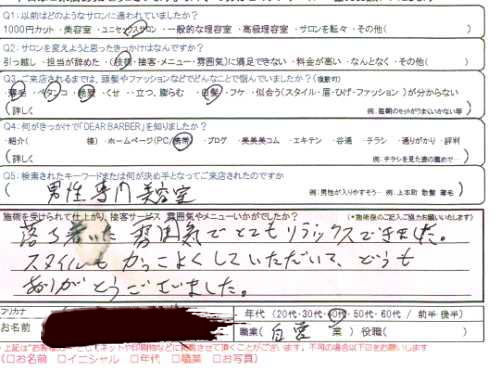 Q1:以前はどのようなサロンに通われていましたか?
1000円カット・美容室・ユニセックスサロン・一般的な理容室・高級理容室・サロンを転々・その他( )
Q2:サロンを変えようと思ったきっかけはなんですか?
引っ越し・担当が辞めた・(技術・接客・メニュー・雰囲気)に満足できない・料金が高い・なんとなく・その他( )
Q3:ご来店されるまでは、頭髪やファッションなどでどんなことで悩んでいましたか?(複数可)
薄毛・ペタンコ・絶壁・くせ・立つ、膨らむ・白髪・フケ・似合う(スタイル・眉・ひげ・ファッション)が分からない
(詳しく 例:髪型のセットがうまくいかない等 )
Q4:何がきっかけで「DEAR BARBER」を知りましたか?
・紹介( 様)・ホームページ(PC/携帯)・ブログ・美美美コム・エキテン・谷通・チラシ・通りがかり・評判
(詳しく 例:チラシを見た妻の薦めで… )
Q5:検索されたキーワードまたは何が決め手となってご来店されたのですか
( 男性専門美容室 例:男性が入りやすそう… )
施術を受けられて仕上がり、接客サービス 雰囲気やメニューいかがでしたか? (*施術後のご記入ご協力お願いいたします)
落ち着いた雰囲気でとてもリラックスできました。
スタイルもかっこよくしていただいて、どうも
ありがとうございました。
フリカナ
お名前
年代(20代・30代・40代・50代・60代 / 前半 後半)
職業( 自営 業) 役職( )
(□お名前 □イニシャル □年代 □職業 □お写真)